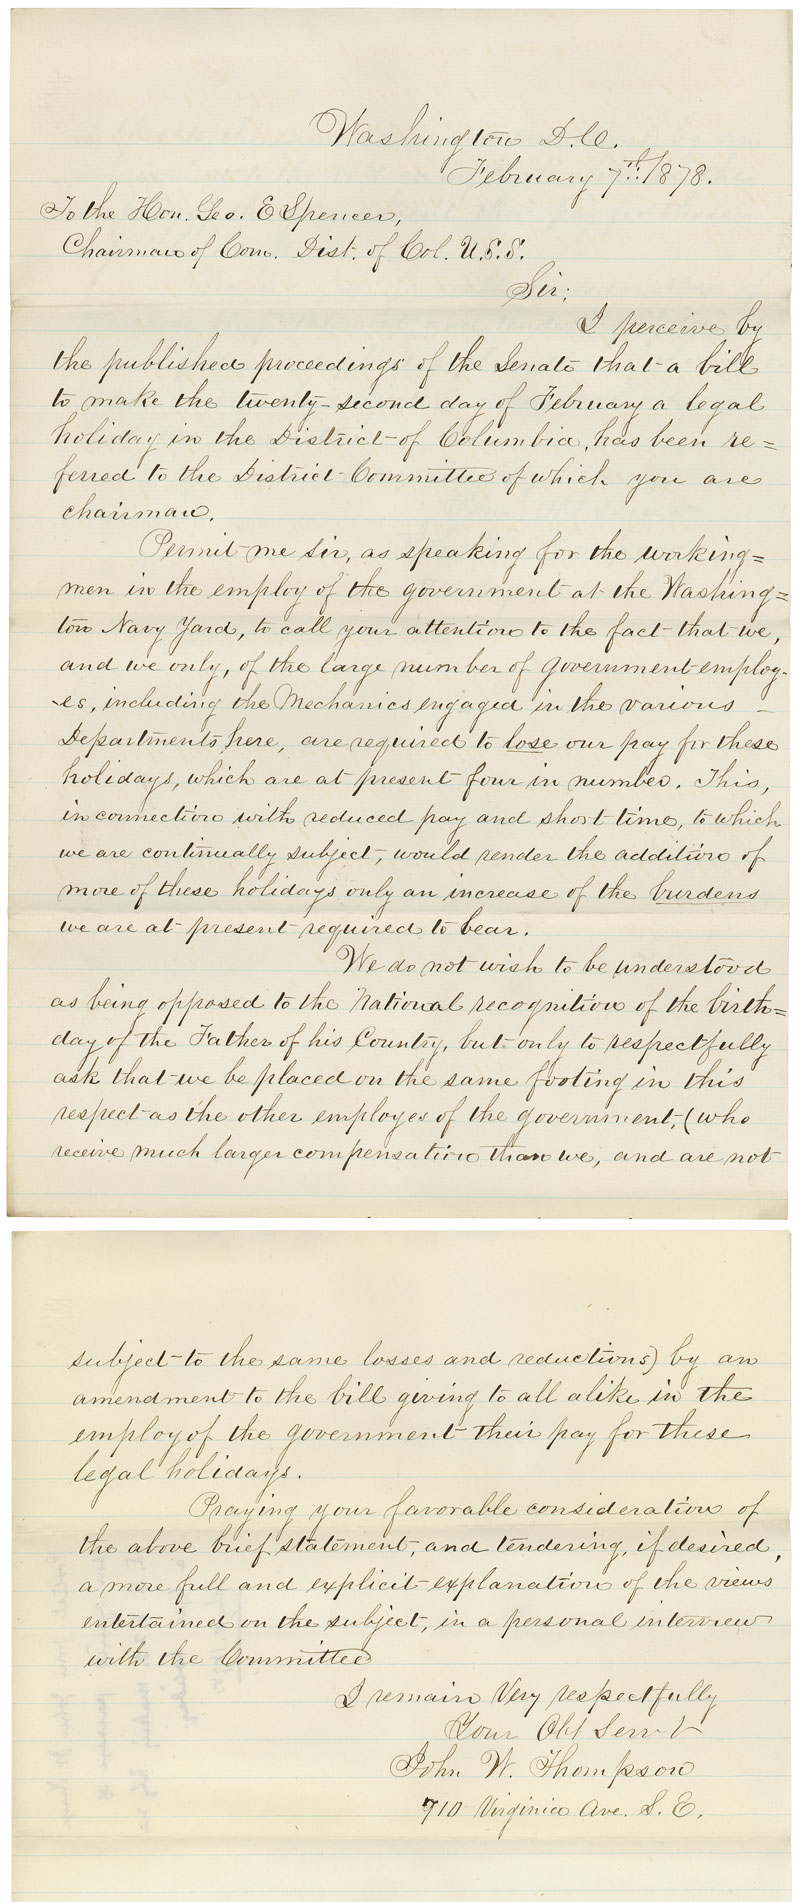 Washington D.C.
February 7th 1878.
To the Hon. Geo. E Spencer,
Chairman of Com. Dist. of Col. U.S.S.
Sir;
I perceive by
the published proceedings of the Senate that a bill
to make the twenty-second day of February a legal
holiday in the District of Columbia, has been re=
ferred to the District Committee of which you are
chairman.
Permit me sir, as speaking for the working=
men in the employ of the government at the Washing=
ton Navy Yard, to call your attention to the fact that we,
and we only, of the large number of government employ-
-es, including the Mechanics engaged in the various
Departments here, are required to lose our pay for these
holidays, which are at present four in number. This,
in connection with reduced pay and short time, to which
we are continually subject, would render the addition of
more of these holidays only an increase of the burdens
we are at present required to bear.
We do not wish to be understood
as being opposed to the National recognition of the birth=
day of the Father of his Country, but only to respectfully
ask that we be placed on the same footing in this
respect as the other employes of the government, (who
receive much larger compensation than we, and are not
subject to the same losses and reductions) by an
amendment to the bill giving to all alike in the
employ of the government their pay for these
legal holidays.
Praying your favorable consideration of
the above brief statement, and tendering, if desired,
a more full and explicit explanation of the views
entertained on the subject, in a personal interview
with the Committee
I remain Very respectfully
Your Obt Servt
John W. Thompson
710 Virginia Ave. S. E.